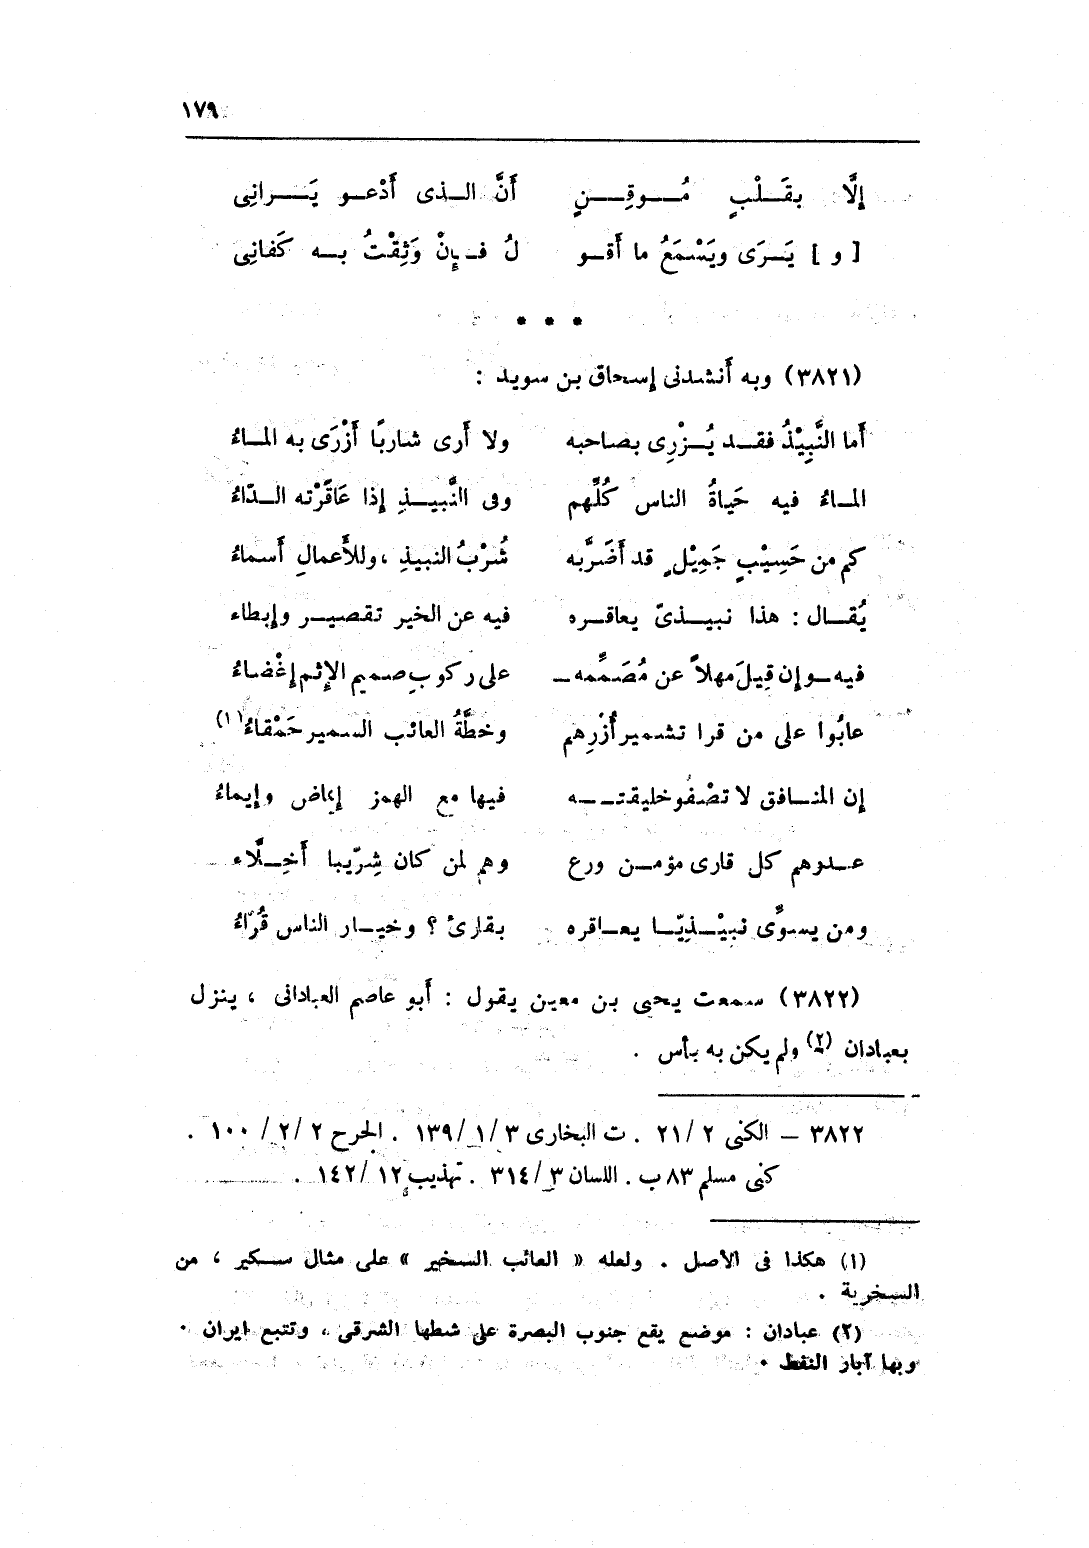 ١٧٩
إلَّا بقَــلْبٍ مُــوقِــنٍ أَنَّ الــذى أَدْعــو يَــرانِى
[ و ] يَــرَى ويَسْمَعُ ما أَقــو لُ فــإِنْ وَثِقْتُ بــه كَفانِى
* * *
(٣٨٢١) وبه أَنشدنى إسحاق بن سويد :
أَما النَّبِيْذُ فقــد يُــزْرِى بصاحبه ولا أَرى شاربًا أَزْرَى به المــاءُ
المــاءُ فيه حَياةُ الناس كُلِّهم وفى النَّبيــذِ إذا عَاقَرْته الــدّاءُ
كم من حَسِيْبٍ جَمِيْلٍ قد أَضَرَّبه شُرْبُ النبيذِ ، وللأَعمالِ أَسماءُ
يُقــال : هذا نبيــذىّ يعاقــره فيه عن الخير تقصيــر وإبطاء
فيه ــ وإن قِيلَ مهلاً عن مُصَمِّمه ــ على ركوبِ صميم الإثم إغْضاءُ
عابُوا على من قرا تشمير أُزْرِهم وخطَّةُ العائب السمير حَمْقاءُ (١)
إن المنــافق لا تصْفُو خليقتــه فيها مع الهمز إيماض وإيماءُ
عــدوهم كل قارى مؤمــن ورع وهم لمن كان شِرّيبا أَخِــلَّاء
ومن يسوِّى نبيْــذِيّــا يعــاقره بقارئ ؟ وخيــار الناس قُرّاءُ
(٣٨٢٢) سمعت يحيى بن معين يقول : أَبو عاصم العبادانى ، ينزل
بعبادان (٢) ولم يكن به بأس .
٣٨٢٢ – الكنى ٢١/٢ . ت البخارى ١٣٩/١/٣ . الجرح ١٠٠/٢/٢ .
كنى مسلم ٨٣ ب . اللسان ٣١٤/٣ . تهذيب ١٤٢/١٢ .
(١) هكذا فى الأصل . ولعله « العائب السخير » على مثال سكير ، من
السخرية .
(٢) عبادان : موضع يقع جنوب البصرة على شطها الشرقى ، وتتبع ايران .
وبها آبار النفط .